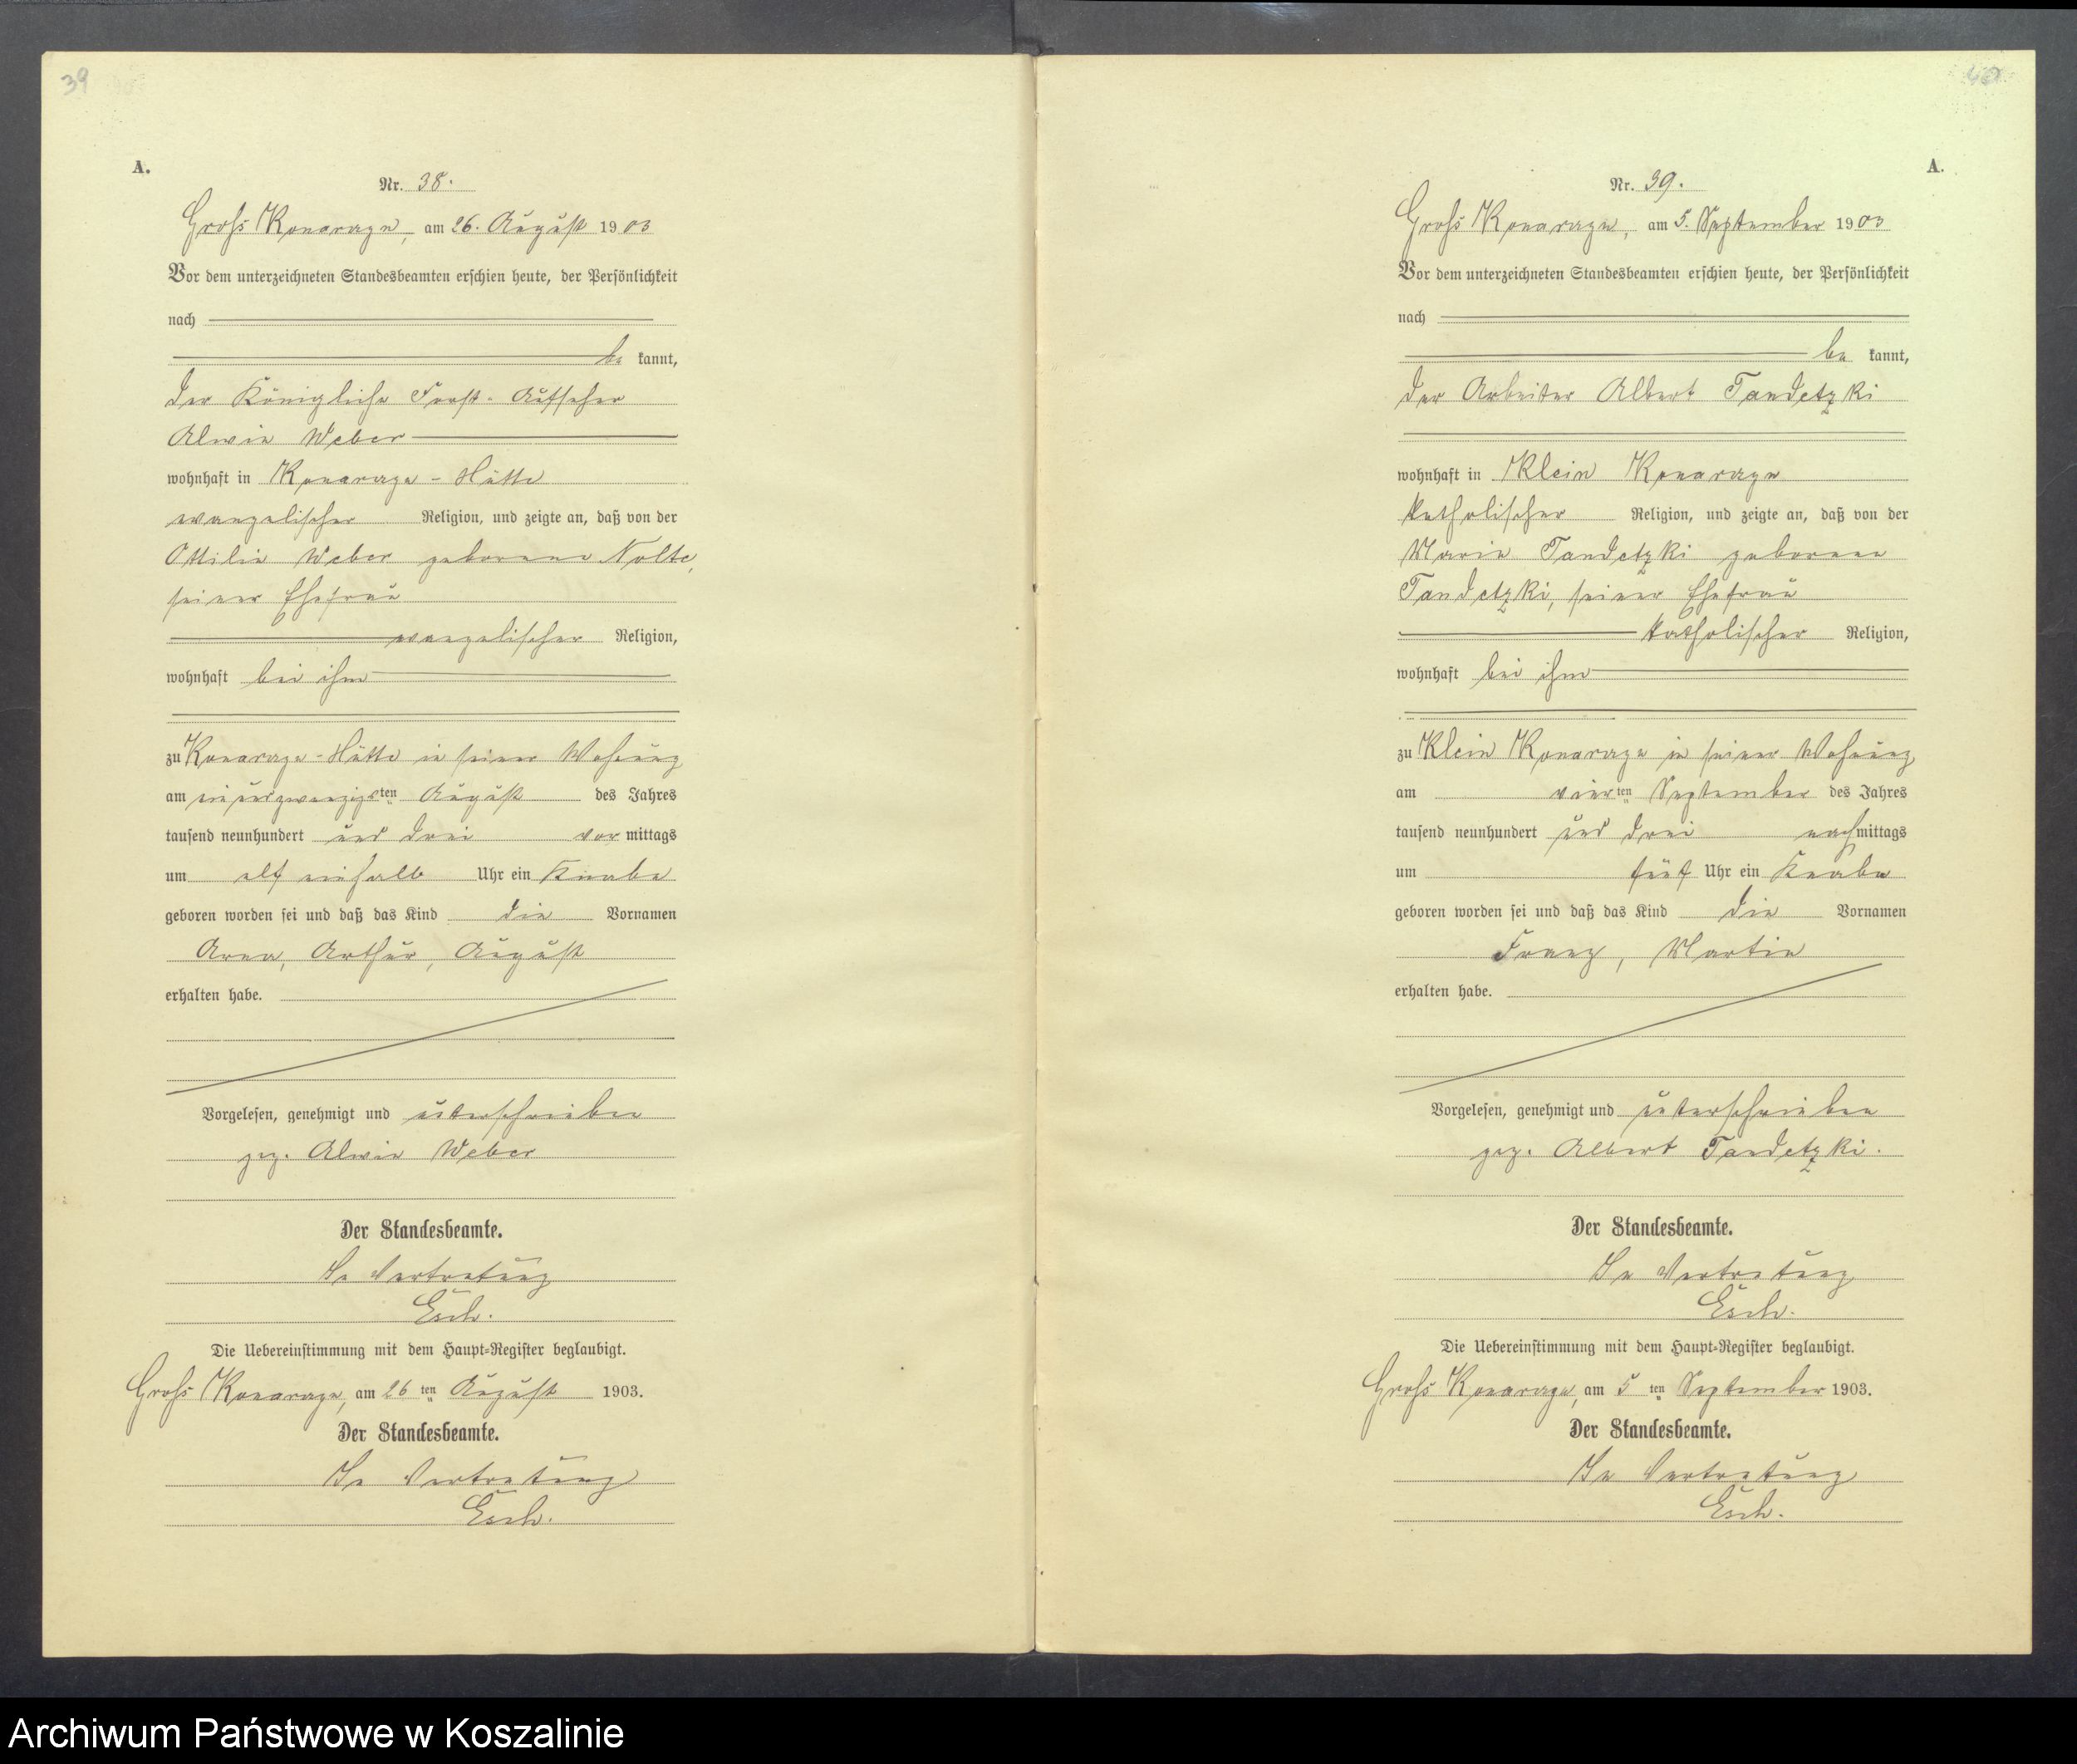 39
A.
Nr. 38.
Gross Konarzyn, am 26. August 1903
Vor dem unterzeichneten Standesbeamten erschien heute, der Persönlichkeit
nach
be kannt,
der Königliche Forst-Aufseher
Alwin Weber
wohnhaft in Konarzyn-Hütte
evangelischer Religion, und zeigte an, daß von der
Ottilie Weber geborene Nolte,
seiner Ehefrau
evangelischer Religion,
wohnhaft bei ihm
zu Konarzyn-Hütte in seiner Wohnung
am einundzwanzigsten August des Jahres
tausend neunhundert und drei vor mittags
um elf einhalb Uhr ein Knabe
geboren worden sei und daß das Kind die Vornamen
Arthur, August
erhalten habe.
Vorgelesen, genehmigt und unterschrieben
gez. Alwin Weber
Der Standesbeamte.
In Vertretung
Esch.
Die Uebereinstimmung mit dem Haupt-Register beglaubigt.
Gross Konarzyn, am 26 ten August 1903.
Der Standesbeamte.
In Vertretung
Esch.
40
A.
Nr. 39.
Gross Konarzyn, am 5. September 1903
Vor dem unterzeichneten Standesbeamten erschien heute, der Persönlichkeit
nach
be kannt,
der Arbeiter Albert Tandetzki
wohnhaft in Klein Konarzyn
katholischer Religion, und zeigte an, daß von der
Marie Tandetzki geborene
Tandetzki, seiner Ehefrau
katholischer Religion,
wohnhaft bei ihm
zu Klein Konarzyn in seiner Wohnung
am vierten September des Jahres
tausend neunhundert und drei nachmittags
um fünf Uhr ein Knabe
geboren worden sei und daß das Kind die Vornamen
Franz, Martin
erhalten habe.
Vorgelesen, genehmigt und unterschrieben
gez. Albert Tandetzki.
Der Standesbeamte.
In Vertretung
Esch.
Die Uebereinstimmung mit dem Haupt-Register beglaubigt.
Gross Konarzyn, am 5 ten September 1903.
Der Standesbeamte.
In Vertretung
Esch.
Archiwum Państwowe w Koszalinie